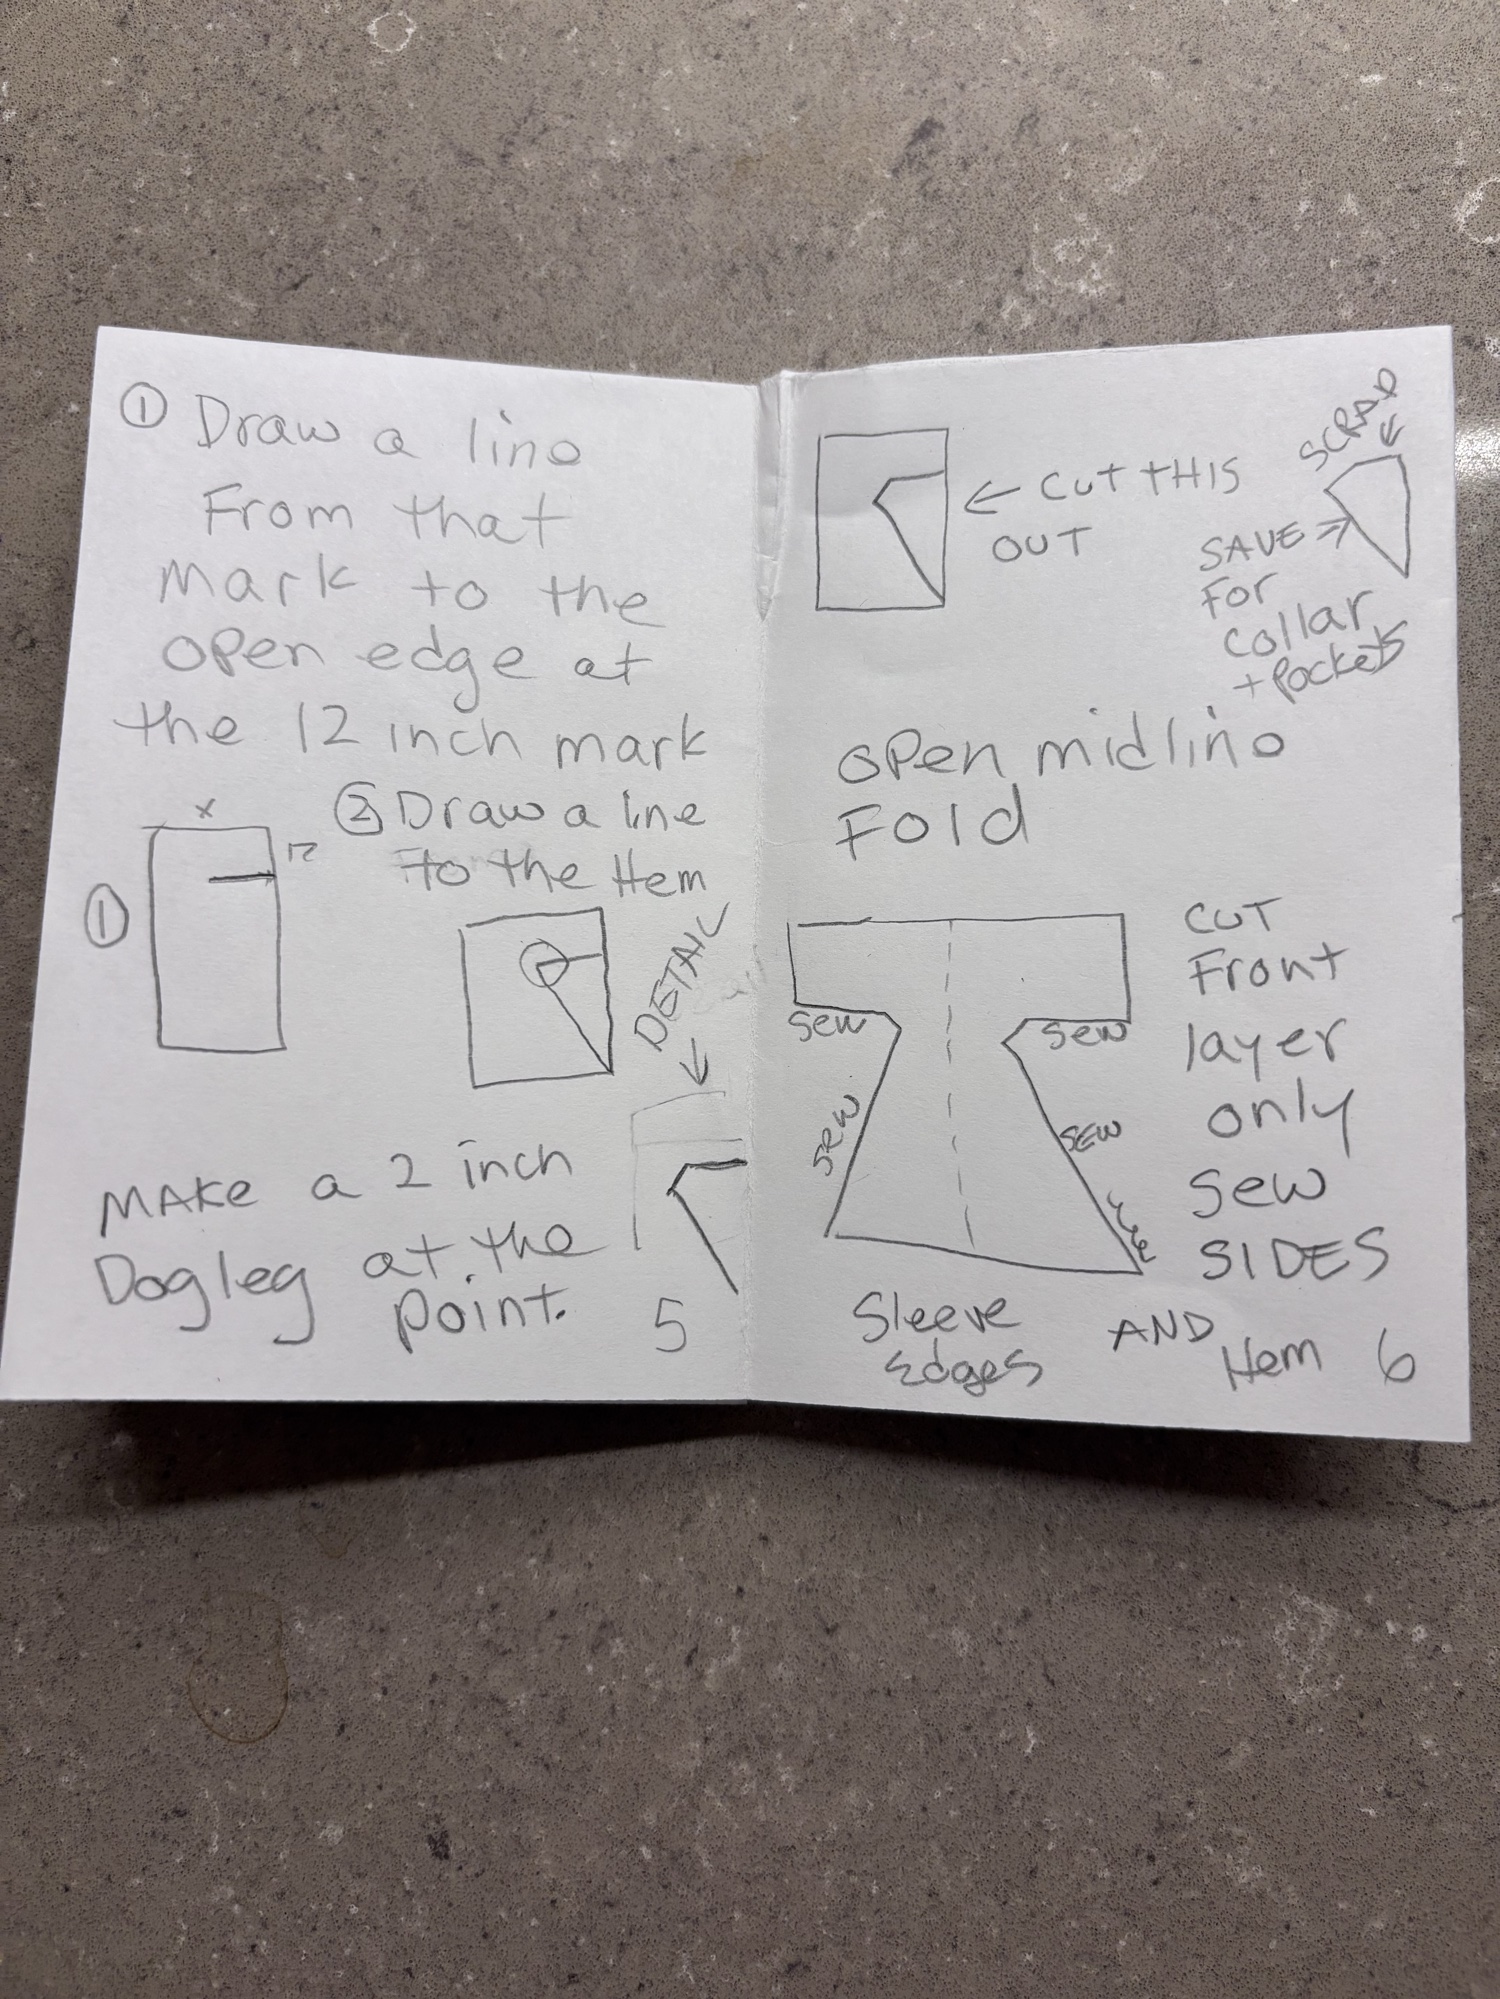 ① Draw a line
From that
Mark to the
open edge at
the 12 inch mark
② Draw a line
to the Hem
x
12
①
DETAIL
MAKE a 2 inch
Dogleg at the
point.
5
← CUT THIS
OUT
SCRAP
SAVE
For
Collar
+ Pockets
open midline
Fold
CUT
Front
layer
only
Sew
SIDES
Sew
Sew
Sew
SEW
Sleeve
Edges
AND
Hem
6